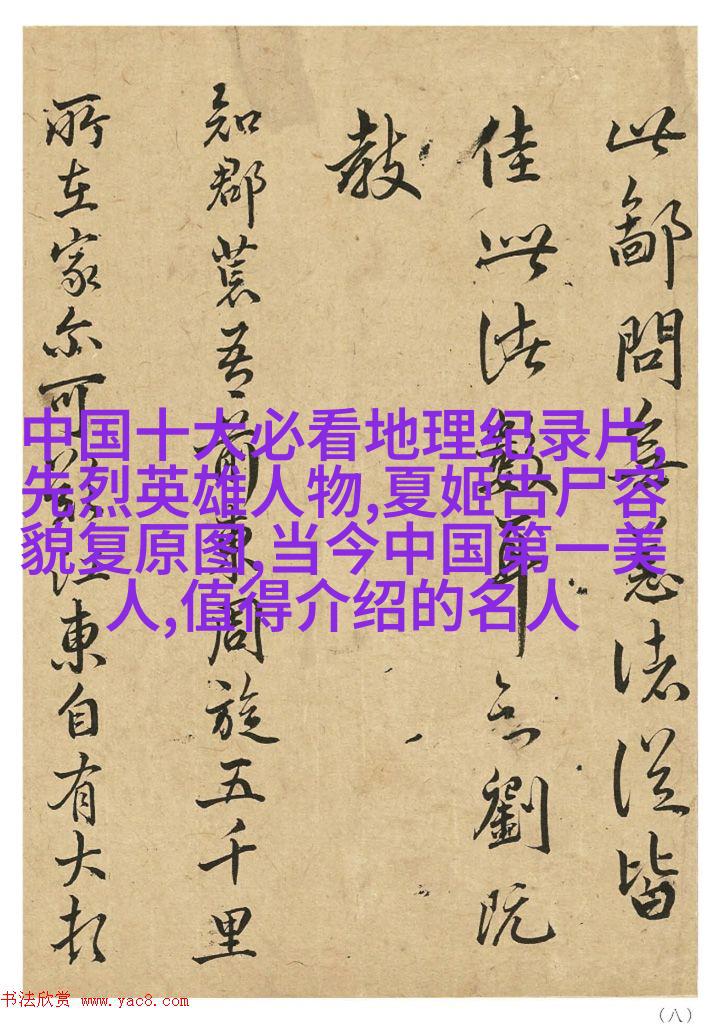 此鄙問無恙諸從皆
佳此諸數耳劉既
教
知郡荒吾前東周旋五千里
所在家尔可江東自有大
中国十大必看地理纪录片,
先烈英雄人物,夏姬古尸容
貌复原图,当今中国第一美
人,值得介绍的名人
书法欣赏 www.yac8.com
(八)